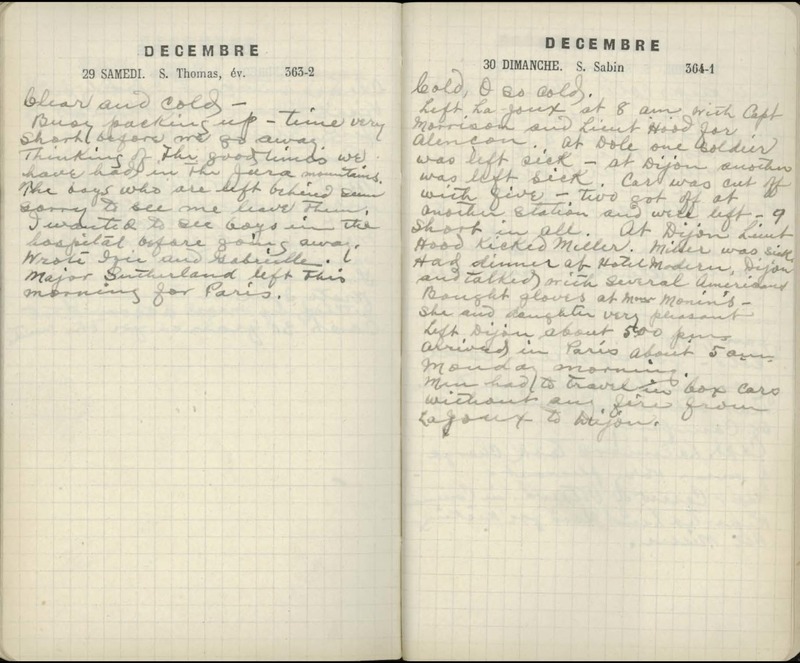 DECEMBRE
29 SAMEDI. S. Thomas, év. 363-2
Clear and cold -
Busy packing up - time very
short before we go away.
Thinking of the good times we
have had in the Jura mountains.
The boys who are left behind seem
sorry to see me leave them.
I wanted to see boys in the
hospital before going away.
Wrote Izie and Gabrielle.
Major Sutherland left this
morning for Paris.
DECEMBRE
30 DIMANCHE. S. Sabin 364-1
Cold, O so cold.
Left La Joux at 8 am with Capt
Morrison and Lieut Hood for
Alencon. At Dole one soldier
was left sick - at Dijon another
was left sick. Car was cut off
with five - two got off at
another station and were left - 9
short in all. At Dijon Lieut
Hood kicked Miller. Miller was sick.
Had dinner at Hotel Modern, Dijon
and talked with several Americans
Bought gloves at Monin's -
She and daughter very pleasant
Left Dijon about 500 pm
arrived in Paris about 5 am
Monday morning.
Men had to travel in box cars
without any fire from
La Joux to Dijon.